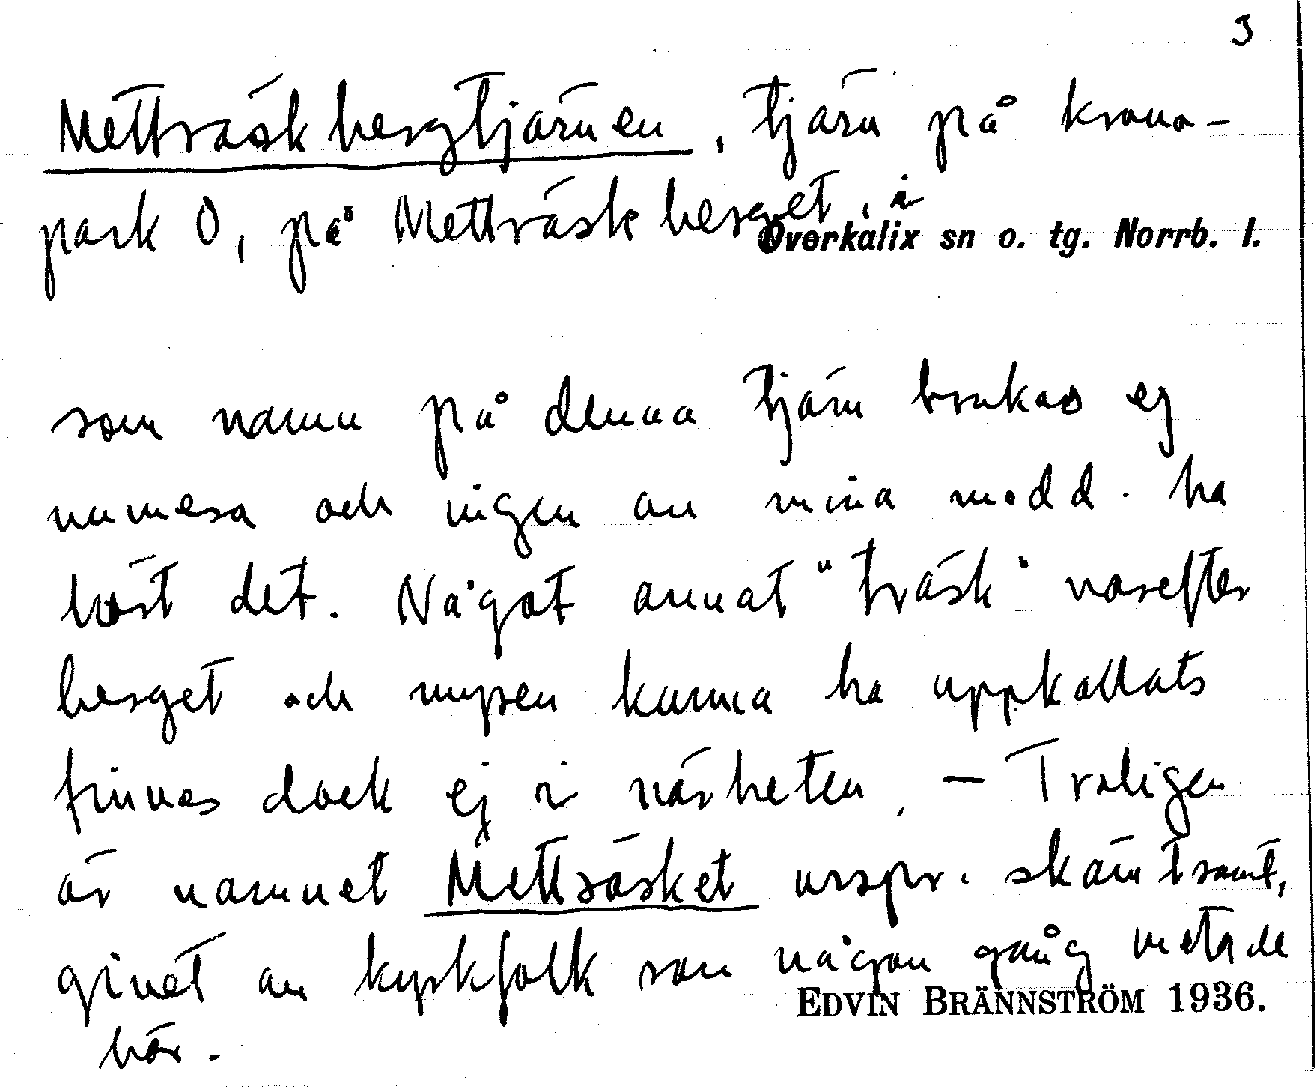 3
Metträskbergtjärnen, tjärn på krono-
park O, på Metträskberget, i
Överkalix sn o. tg. Norrb. l.
som namn på denna tjärn brukas ej
numera och ingen av mina medd. ha
hört det. Något annat "träsk" varefter
berget och myren kunna ha uppkallats
finnes dock ej i närheten. — Troligen
är namnet Metträsket urspr. skämtsamt,
givet av kyrkfolk som någon gång metade
här.
EDVIN BRÄNNSTRÖM 1936.